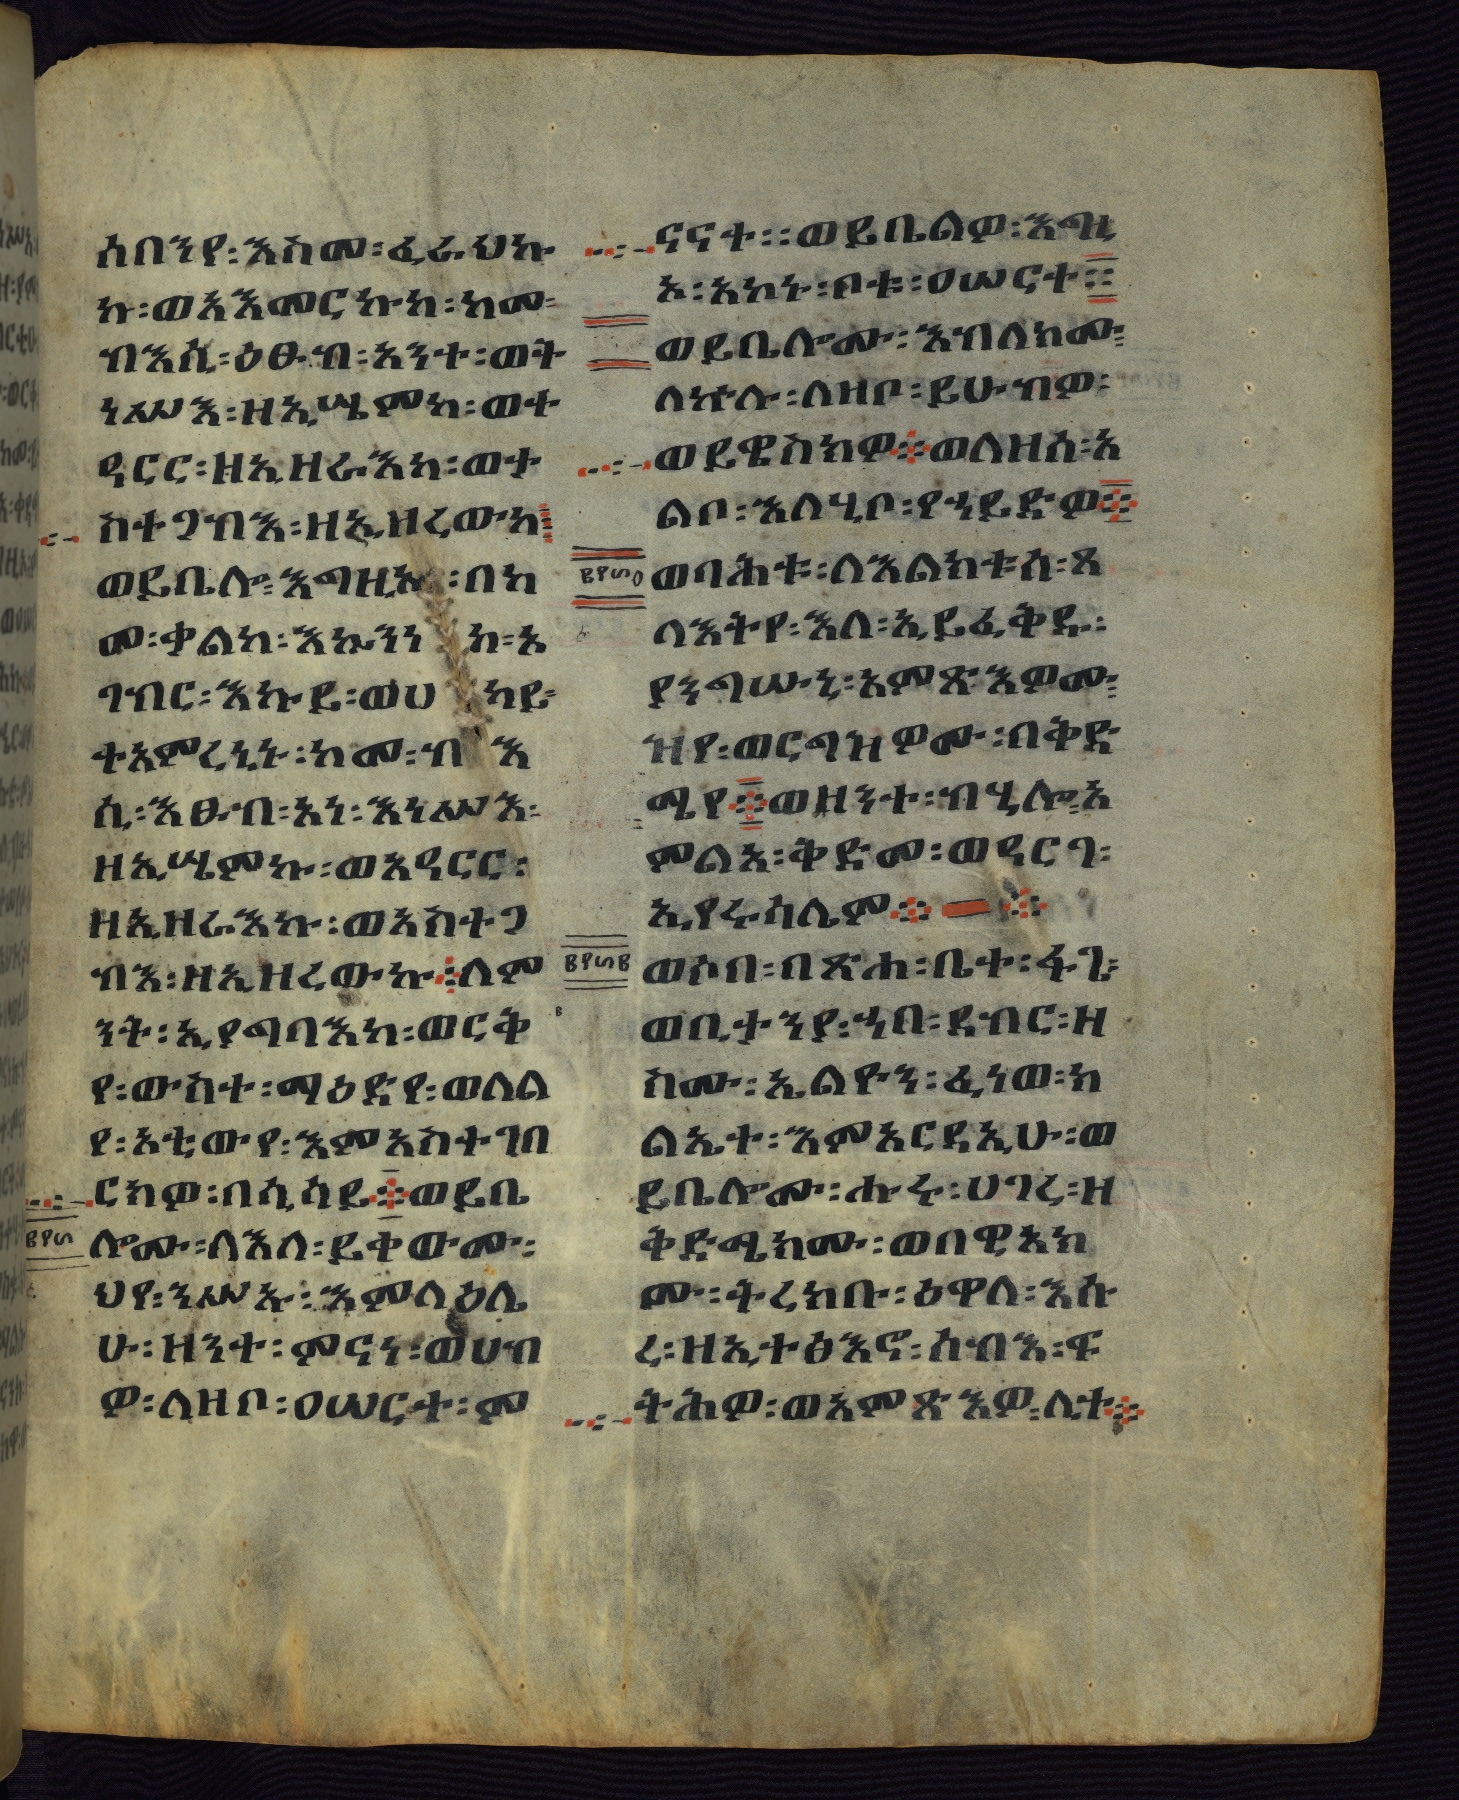 ሰበንየ፡እስመ፡ፈራህኩ
ኩ፡ወአእመርኩከ፡ከመ፡
ብእሲ፡ዕፁብ፡አንተ፡ወት
ነሥእ፡ዘኢሤምከ፡ወተ
ዓርር፡ዘኢዘራእከ፡ወታ
ስተጋብእ፡ዘኢዘረውከ፨
ወይቤሎ፡እግዚኡ፡በከ
መ፡ቃልከ፡እኴንነከ፡እ
ገብር፡እኩይ፡ወሀካይ፡
ተአምረኒኑ፡ከመ፡ብእ
ሲ፡እፁብ፡አነ፡እነሥእ፡
ዘኢሤምኩ፡ወአዓርር፡
ዘኢዘራእኩ፡ወአስተጋ
ብእ፡ዘኢዘረውኩ፨ለም
ንት፡ኢያግባእከ፡ወርቅ
የ፡ውስተ፡ማዕድየ፡ወለል
የ፡አቲውየ፡እምአስተገበ
ርክዎ፡በሲሳይ፨ወይቤ
ሎሙ፡ለእለ፡ይቀውሙ፡
፳፻፺
ህየ፡ንሥኡ፡እምላዕሌ
ሁ፡ዘንተ፡ምናነ፡ወሀብ
ዎ፡ለዘቦ፡ዐሠርተ፡ም
ናናተ፡፡ወይቤልዎ፡እግዚ
ኦ፡አኮኑ፡ቦቱ፡ዐሠርተ፡፡
ወይቤሎሙ፡እብለክሙ፡
ለኵሉ፡ለዘቦ፡ይሁብዎ፡
ወይዌስክዎ፨ወለዘሰ፡አ
ልቦ፡እለሂቦ፡የኀይድዎ፨
፳፻፺፩
ወባሕቱ፡ለእልክቱሰ፡ጸ
ላእትየ፡እለ፡ኢይፈቅዱ፡
ያንግሡኒ፡አምጽእዎሙ፡
ዝየ፡ወርግዝዎሙ፡በቅድ
ሜየ፨ወዘንተ፡ብሂሎ፡አ
ምልአ፡ቅድመ፡ወዓርገ፡
ኢየሩሳሌም፨ ፨
፳፻፺፪
ወሶበ፡በጽሐ፡ቤተ፡ፋጌ፡
ወቢታንያ፡ኀበ፡ደብር፡ዘ
ስሙ፡ኤልዮን፡ፈነወ፡ክ
ልኤተ፡እምአርዳኢሁ፡ወ
ይቤሎሙ፡ሑሩ፡ሀገረ፡ዘ
ቅድሜክሙ፡ወበዊአክ
ሙ፡ትረክቡ፡ዕዋለ፡እሱ
ረ፡ዘኢተፅእኖ፡ሰብእ፡ፍ
ትሕዎ፡ወአምጽእዎ፡ሊተ፨